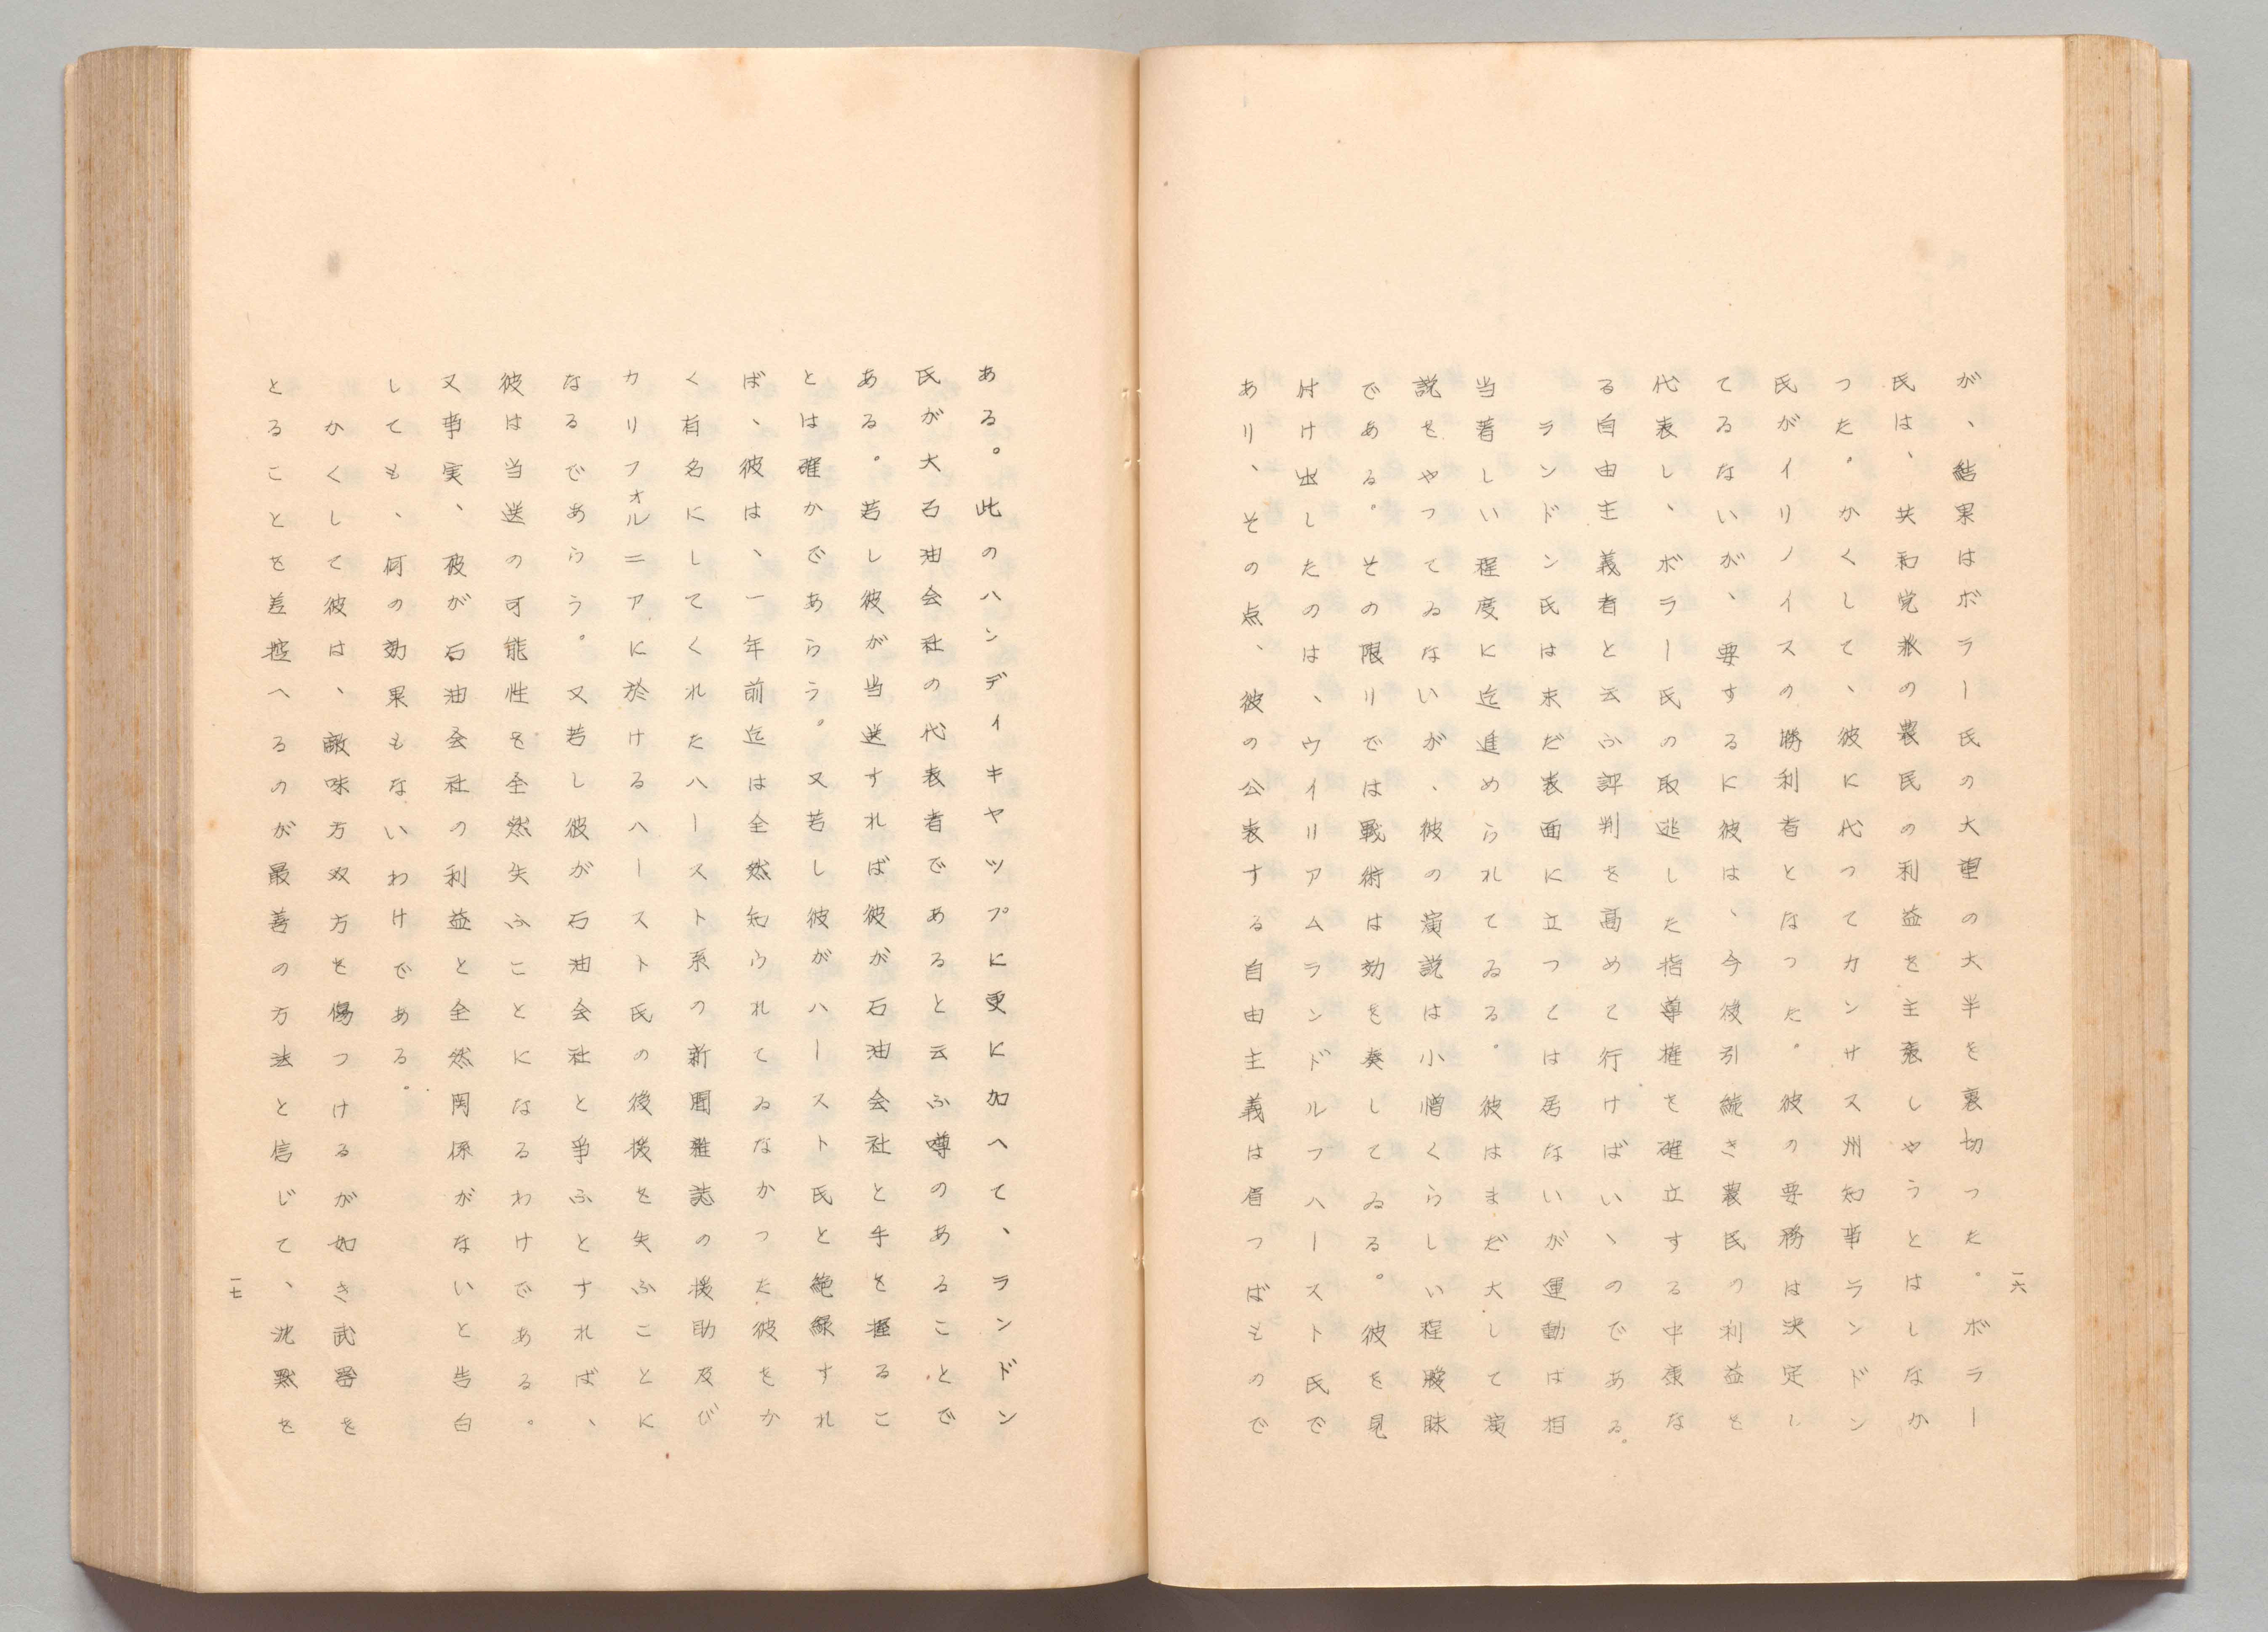 が、結果はボラー氏の大望の大半を裏切つた。ボラー
氏は、共和党派の農民の利益を主張しやうとはしなか
つた。かくして、彼に代つてカンサス州知事ランドン
氏がイリノイスの勝利者となつた。彼の要務は決定し
てゐないが、要するに彼は、今後引続き農民の利益を
代表し、ボラー氏の取逃した指導権を確立する中庸な
る自由主義者と云ふ評判を高めて行けばいゝのである。
ランドン氏は未だ表面に立つては居ないが運動は相
当著しい程度に迄進められてゐる。彼はまだ大して演
説をやつてゐないが、彼の演説は小憎くらしい程曖昧
である。その限りでは戦術は効を奏してゐる。彼を見
付け出したのは、ウイリアムランドルフハースト氏で
あり、その点、彼の公表する自由主義は眉つばもので
一六
ある。此のハンディキヤツプに更に加へて、ランドン
氏が大石油会社の代表者であると云ふ噂のあることで
ある。若し彼が当選すれば彼が石油会社と手を握るこ
とは確かであらう。又若し彼がハースト氏と絶縁すれ
ば、彼は、一年前迄は全然知られてゐなかつた彼をか
く有名にしてくれたハースト系の新聞雑誌の援助及び
カリフォルニアに於けるハースト氏の後援を失ふことに
なるであらう。又若し彼が石油会社と争ふとすれば、
彼は当選の可能性を全然失ふことになるわけである。
又事実、彼が石油会社の利益と全然関係がないと告白
しても、何の効果もないわけである。
かくして彼は、敵味方双方を傷つけるが如き武器を
とることを差控へるのが最善の方法と信じて、沈黙を
一七